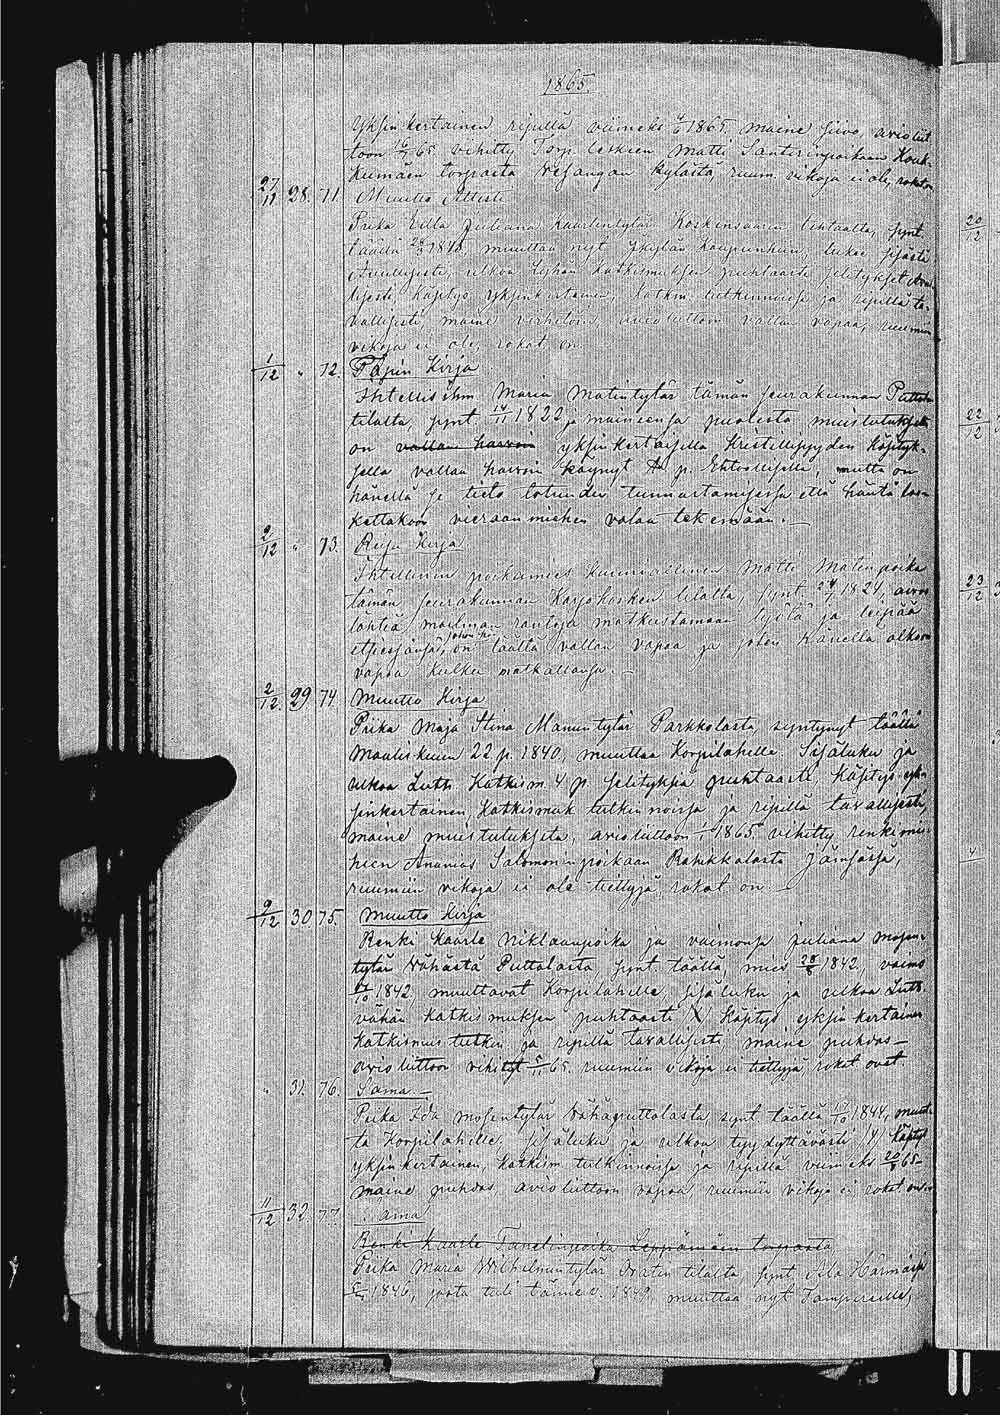 1865.
Yksinkertainen ripillä viimeks 1865. maine hywä, aviolit
toon 65. vihitty Torp. leskeen Matti Santerinpoikaan Kouk-
kumäen torpasta Vesangan kylästä, ruum. vikoja ei ole, rokot on
27/11 28. 71. Muutto Attesti
Piika Eva Juliana Kaarlentytär Koskensaaren tehtaalta, synt.
täällä 1840, muuttaa nyt Jkylän kaupunkiin, lukee sisästä
ulkoa Lyhän Katkismuksen puhtaasti selitykset
Käsitys yksinkertainen, katkm. tutkinnoissa ja ripillä ta-
vallisesti, maine virheetön, avioliittoon vallan vapaa, ruumiin
vikoja ei ole, rokot on
1/12 " 72. Papin Kirja
Ihtellis ihm Maria Matintytär tämän seurakunnan
tilalta, synt. 14/11 1822 ja maineensa puolesta muistutuksetta
on vallan harvoin yksinkertaisella kristillisyyden käsityk-
sellä vallan harvoin käynyt H. p. Ehtoollisella, mutta on
hänellä se tieto totuuden tunnustamisessa että häntä las-
kettakoon vieraan miehen valaa tekemään. —
2/12 " 73. Reisu Kirja
Ihtellinen poikamies kunniallinen Matti Matinpoika
tämän seurakunnan Karjakosken tilalta, synt. 24/7 1821, aivoo
lähteä maailman rantoja matkustamaan työtä ja leipää
etsiessänsä, johon hän on täältä vallan vapaa ja joten hänellä olkoon
vapaa kulku matkallansa. —
2/12. 29 74. Muutto Kirja
Piika Maja Stina Manuntytär Parkkolasta, syntynyt täällä
Maaliskuun 22 p. 1840, muuttaa Korpilahelle Sisäluku ja
ulkoa Luth. Katkism. 4 p. selityksiä puhtaasti, käsitys yk-
sinkertainen, Katkismuk tutkinnoissa ja ripillä tavallisesti,
maine muistutuksita, avioliittoon 1865 vihitty renkimie-
heen Ananias Salomoninpoikaan Rahkkolasta Jämsässä,
ruumiin vikoja ei ole tiettyjä, rokot on —
9/12 30. 75. Muutto Kirja
Renki Kaarle Niklaanpoika ja vaimonsa Juliana Mosen-
tytär Vähästä Puttolasta synt. täällä, mies 28/5 1842, vaimo
1842, muuttavat Korpilahelle, sisäluku ja ulkoa Luth.
vähän katkismuksen puhtaasti (x) käsitys yksinkertainen
Katkismus tutkin ja ripillä tavallisesti, maine puhdas —
avioliittoon vihityt 5/11 65. ruumiin vikoja ei tiettyjä rokot ovat.
" 31. 76. Sama —
Piika Ida Mosentytär Vähäputtolasta, synt täällä 1844, muut-
ta Korpilahelle, sisäluku ja ulkoa tyydyttävästi (4) käsitys
yksinkertainen, katkism tutkinnoissa ja ripillä viimeks 20/8 65 —
maine puhdas, avioliittoon vapaa, ruumiin vikoja ei rokot on
11/12 32 77. Sama
Renki Kaarle Tanelinpoika Leppämäen torpasta
Piika Maria Wilhelmiintytär Oraten tilalta, synt. Ala Härmässä
1846, josta tuli tänne v. 1849, muuttaa nyt Tampereelle,
20/12
22/12
23/12
4